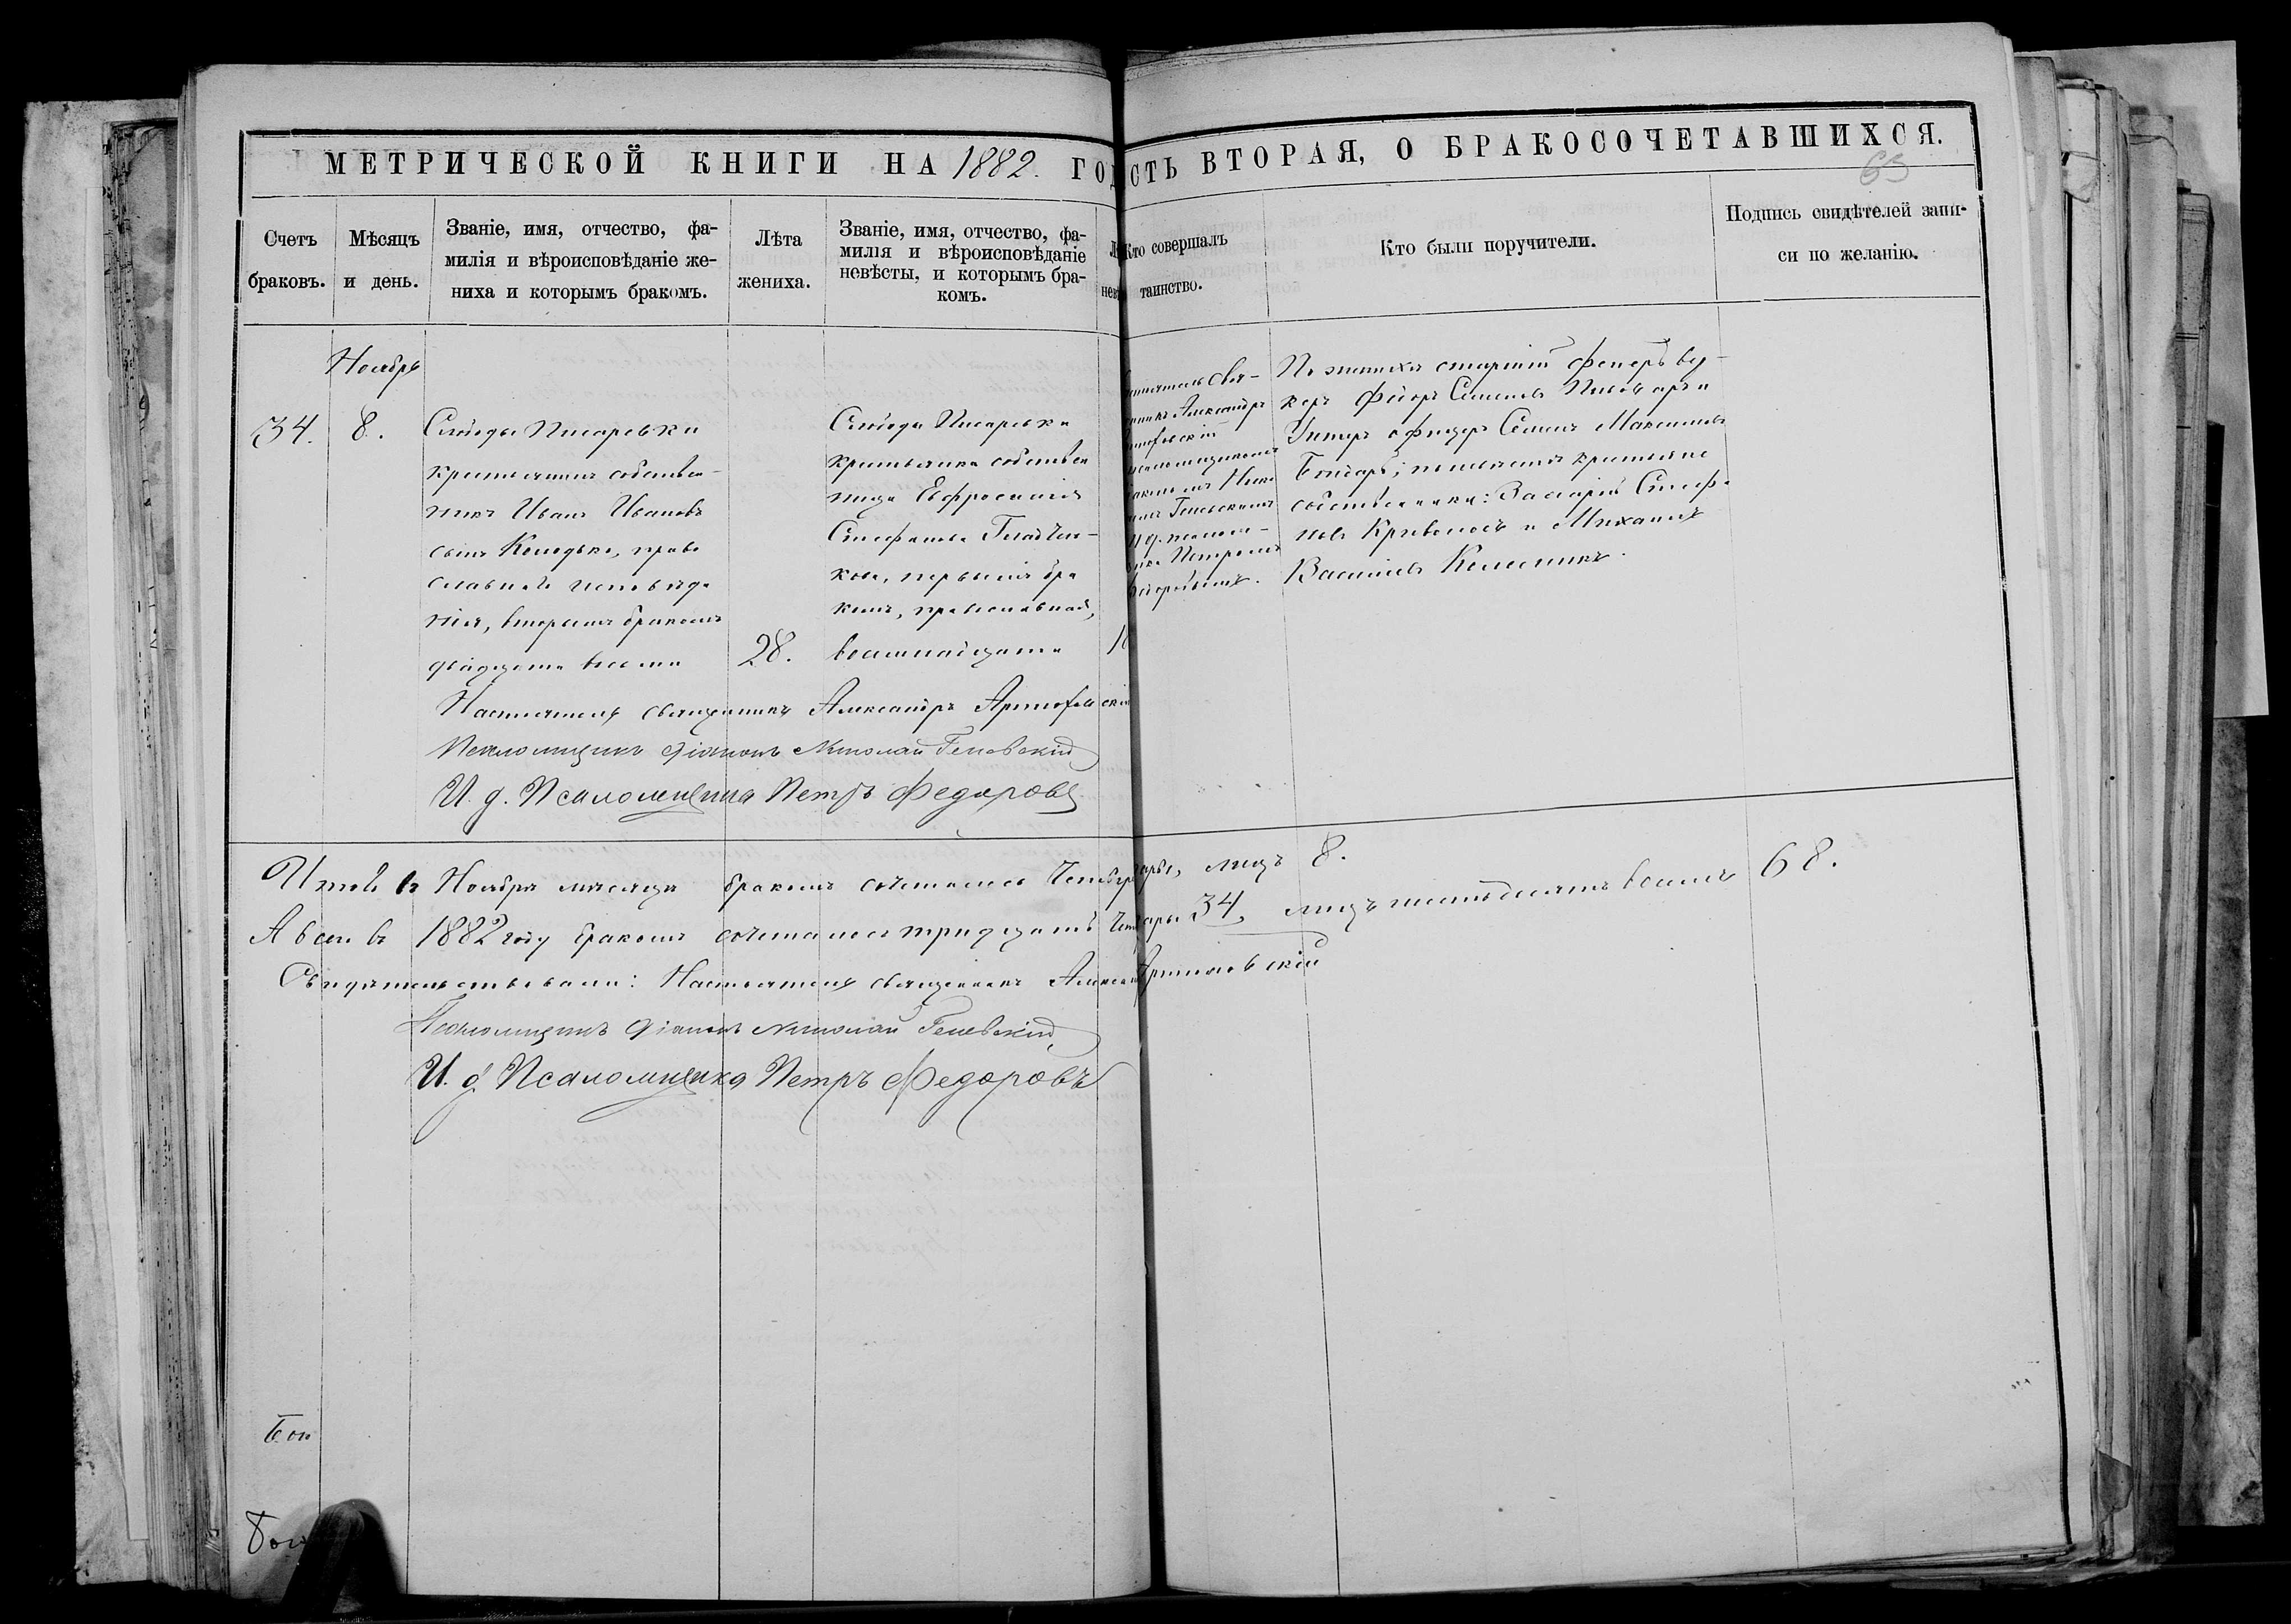 МЕТРИЧЕСКОЙ КНИГИ НА 1882. ГОД
СТЬ ВТОРАЯ, О БРАКОСОЧЕТАВШИХСЯ.
Счетъ браковъ.
Мѣсяцъ и день.
Званіе, имя, отчество, фа-
милія и вѣроисповѣданіе же-
ниха и которымъ бракомъ.
Лѣта жениха.
Званіе, имя, отчество, фа-
милія и вѣроисповѣданіе
невѣсты, и которымъ бра-
комъ.
Кто совершалъ
таинство.
Кто были поручители.
Подпись свидѣтелей запи-
си по желанію.
Ноябрь
34.
8.
Слободы Писаревки
крестьянинъ собствен-
никъ Иванъ Ивановъ
сынъ Колодько, право
славнаго исповѣда
нія, вторымъ бракомъ
двадцати восьми
28.
Слободы Писаревки
крестьянка собствен
ница Евфросинія
Стефанова
кова, первымъ бра
комъ, православная,
восемнадцати
Александръ
Николаемъ
Петромъ
По женихѣ старшій феиерѣвер-
керъ Фёдоръ Семеновъ Пивоваръ и
Унтеръ офицеръ Семенъ Максимовъ
Бондарь; по невѣстѣ крестьяне
собственники: Стефа
новъ Кривонось и Михаилъ
Василіевъ Колесникъ.
Настоятель священникъ Александръ Артюховскій
Псаломщикъ діаконъ Николай Геневскій
И. д. Псаломщика Петръ Федоровъ
Итого въ Ноябрѣ мѣсяцѣ бракомъ сочеталось четыре пары, лицъ 8.
А всего въ 1882 году бракомъ сочеталось тридцать четыре пары 34, лицъ шестьдесятъ восемь 68.
Свидѣтельствовали: Настоятель священникъ Артюховскій
Псаломщикъ діаконъ Николай Геневскій
И. д. Псаломщика Петръ Федоровъ